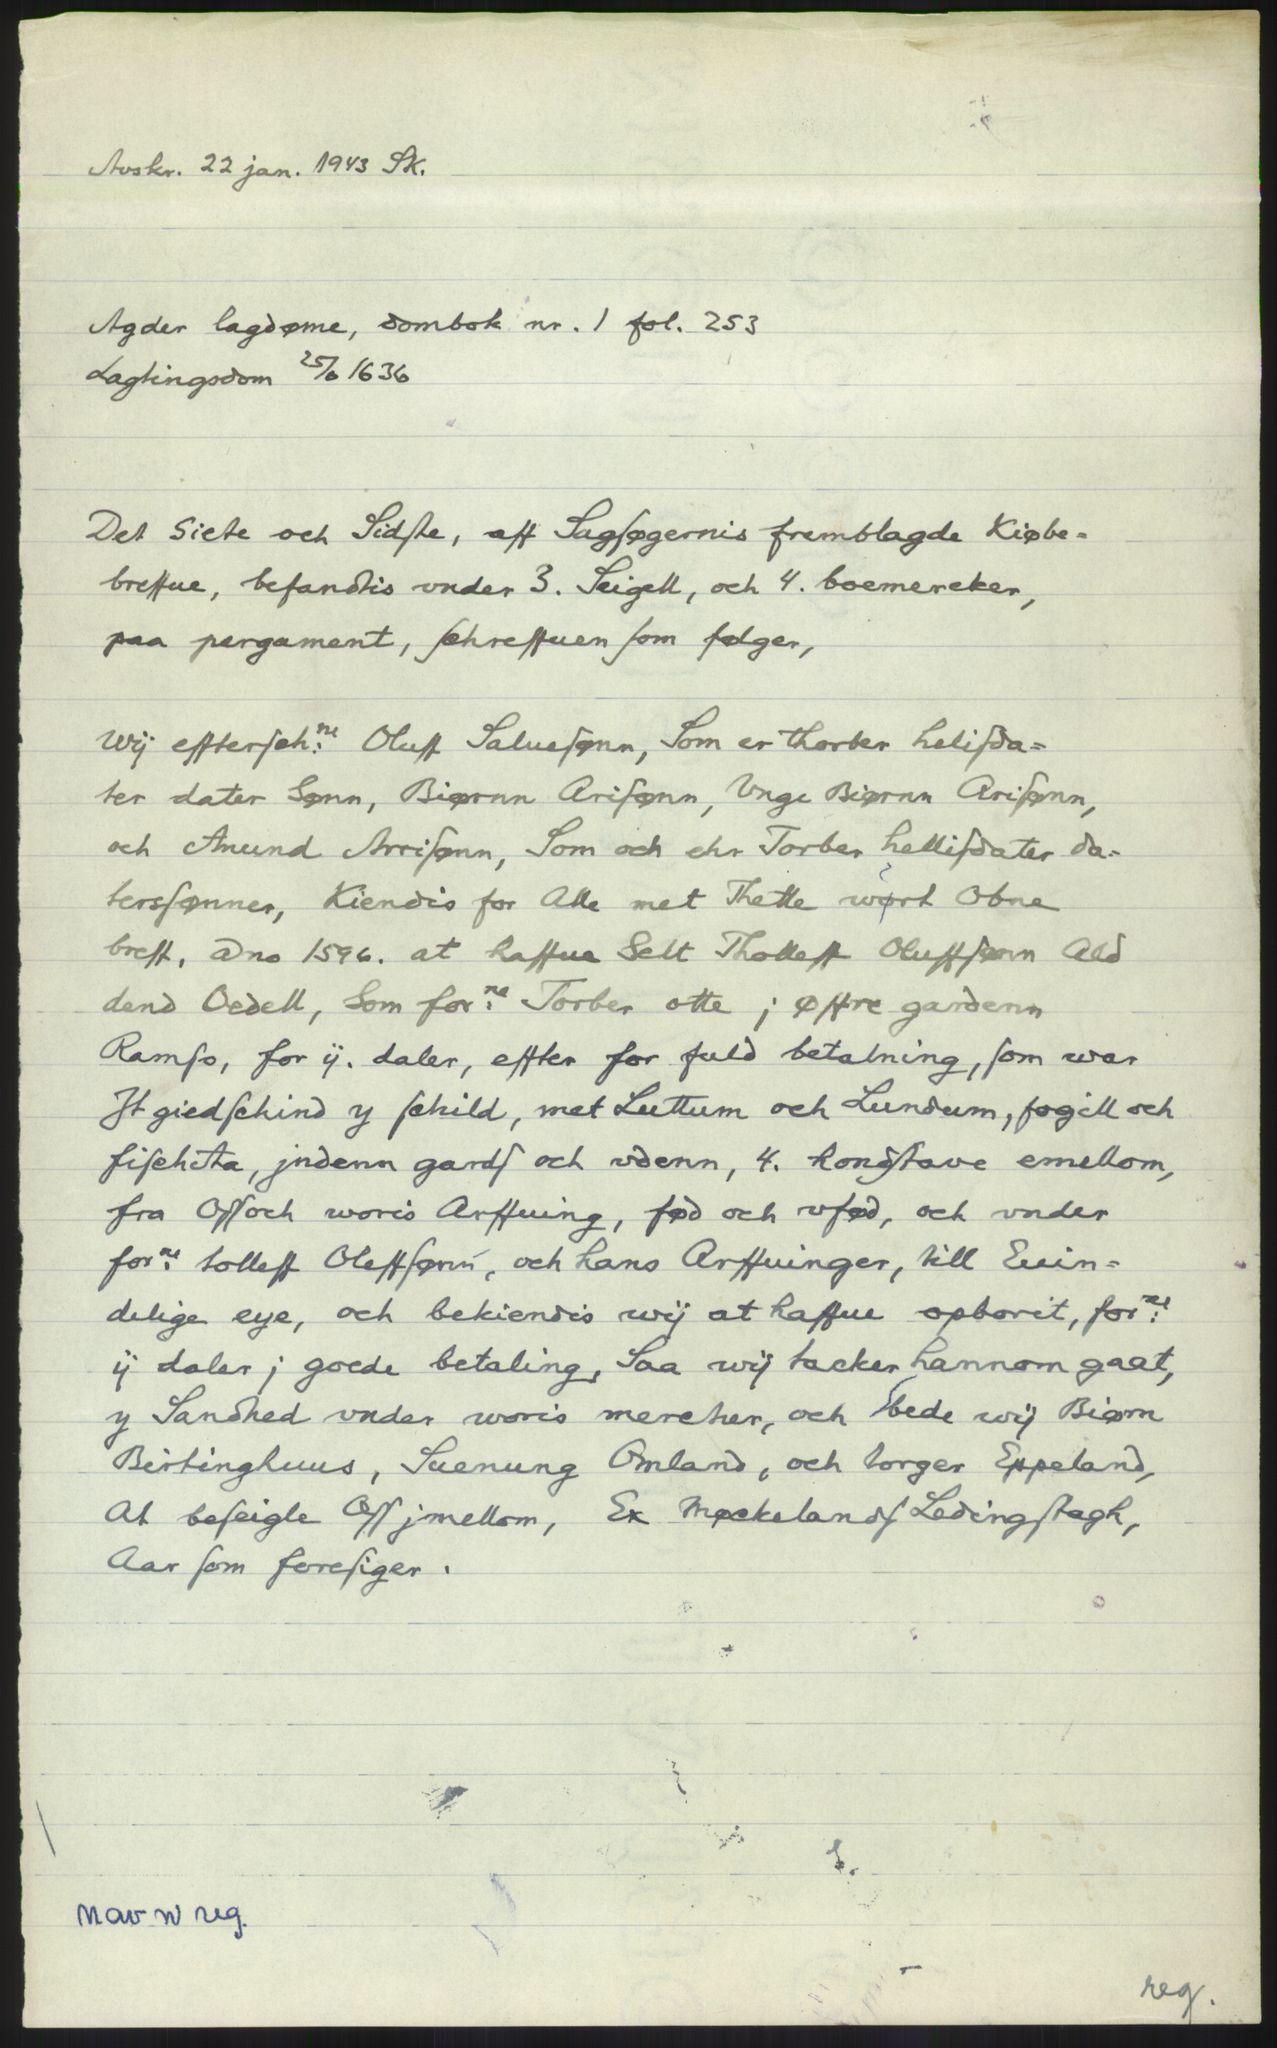 Avskr. 22 jan. 1943 SK.
Agder lagdøme, dombok nr. 1 fol. 253
Lagtingsdom 25/6 1636
Det Siete och Sidste, aff Sagsøgernis fremblagde Kiøbe-
breffue, befandtis vnder 3. Seigell, och 4. boemereker,
paa pergament, schreffuen som følger,
Wij effterschne: Oluff Saluesønn, Som er thorber helisda-
ter dater Sønn, Biørnn Arisønn, Vnge Biørnn Arisønn,
och Amund Arrisønn, Som och ehr Torber hellisdater da-
tersønner, Kiendis for Alle met Thette wort Obne
breff, Ano 1596. at haffue Selt Tholleff Oluffsønn Ald
dend Oedell, Som forne: Torber otte j øffre gardenn
Ramso, for ij. daler, effter for fuld betalning, som war
Jt giedschind y schild, met Luttum och Lundum, fogill och
fischita, jndenn gards och vdenn, 4. hondstave emellom,
fra Oss och woris Arffuing, fød och vfød, och vnder
forne: tolleff Oleffsønn, och hans Arffuinger, till Euin-
delige eye, och bekiendis wij at haffue opborit, forne:
ij daler j goede betaling, Saa wij tacker hannom gaat,
y Sandhed vnder woris mercher, och bede wij Biørn
Birtinghuus, Suenung Omland, och torger Eppeland,
At beseigle Oss jmellom, Ex Møckelands Ledingstagh,
Aar som foresiger.
nav n reg.
reg.